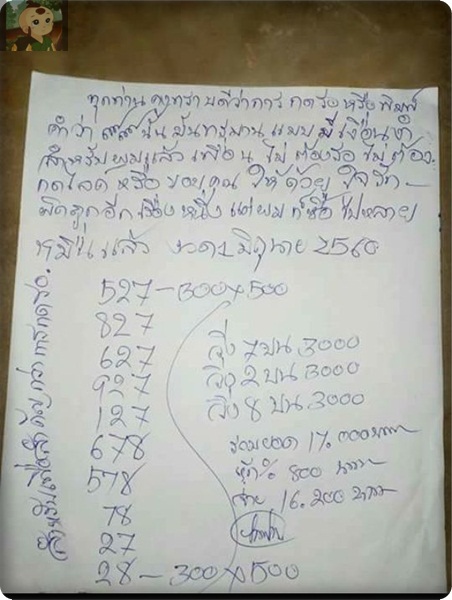 ทุกท่าน คงทราบดีว่าการ กดรอ หรือ พิมพ์
คำว่า สสส นั้น มันทรมาน แบบ มีเงื่อนงำ
สำหรับผมแล้ว เพื่อน ไม่ ต้องรอ ไม่ต้อง
กดไลค์ หรือ ขอบคุณ ให้ ด้วย ใจรัก
ผิดถูกอีก เรื่อง หนึ่ง แต่ผม ก็ซื้อ ไปหลาย
หมื่นแล้ว งวด 1 มิถุนายน 2560
527-300x500
827
627
927
127
678
578
78
27
28-300x500
วิ่ง 7 บน 3000
วิ่ง 2 บน 3000
วิ่ง 8 บน 3000
รวมยอด 17.000 บาท
หัก % 800 บาท
จ่าย 16.200 บาท
สำหรับเพื่อน